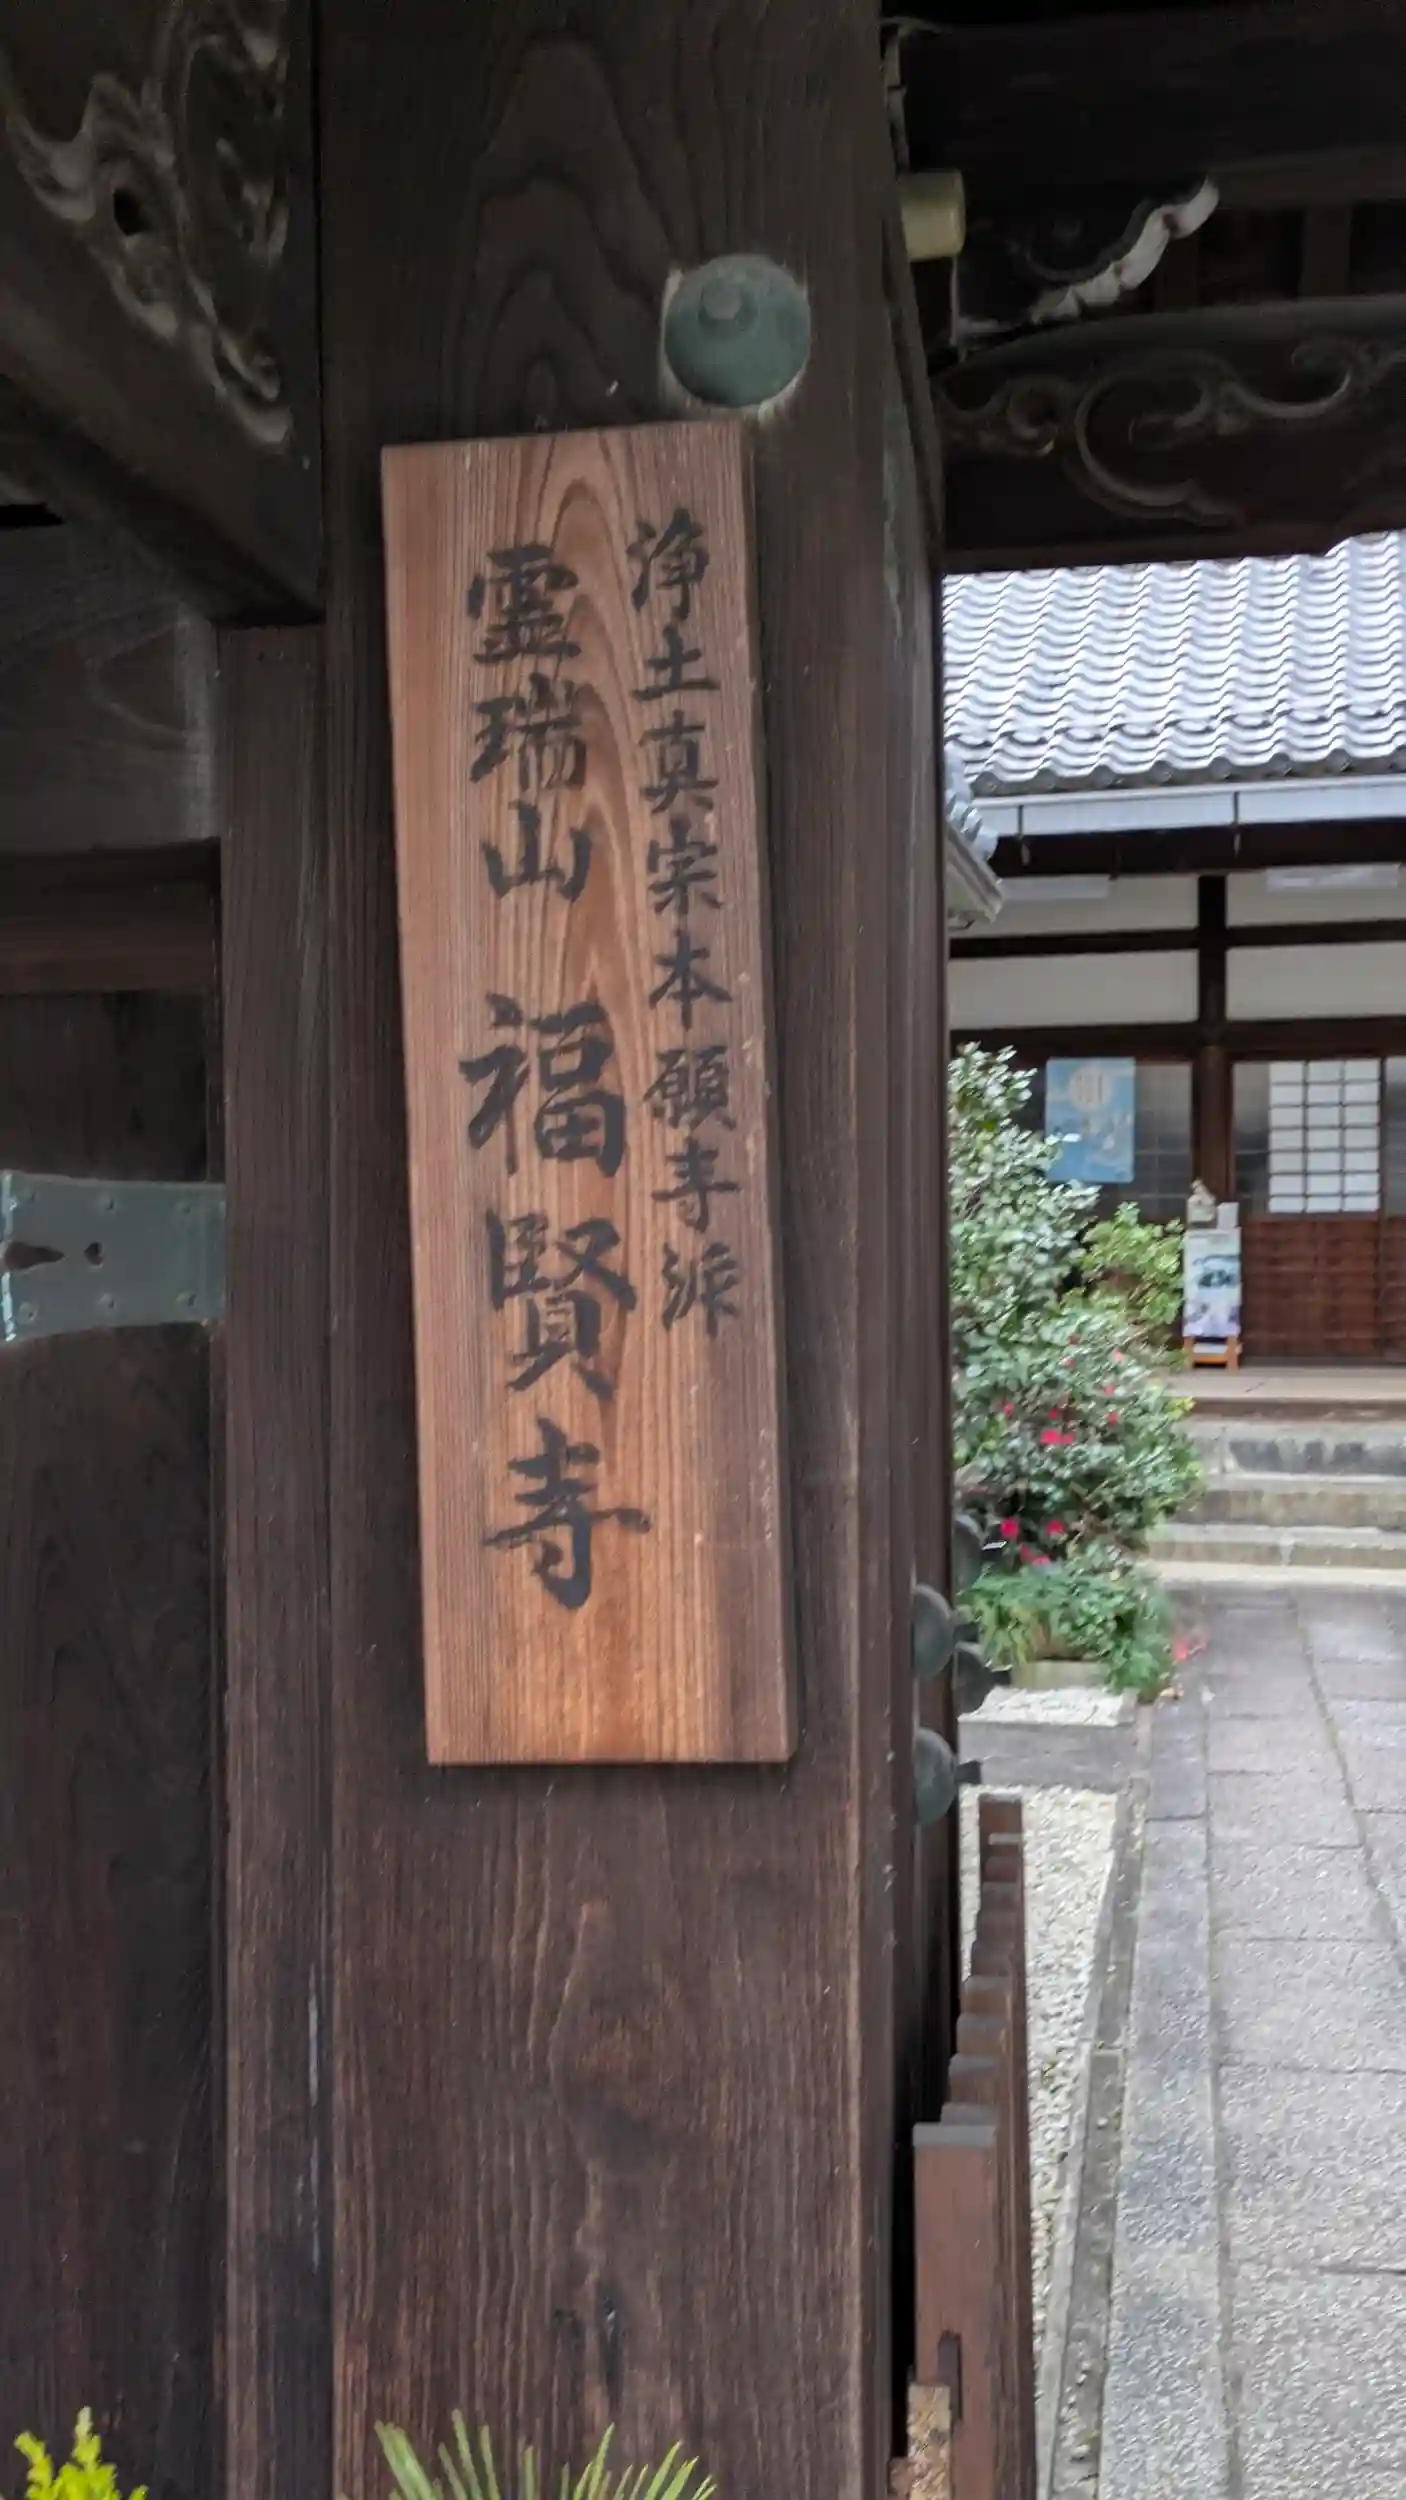 浄土真宗本願寺派
霊瑞山 福賢寺